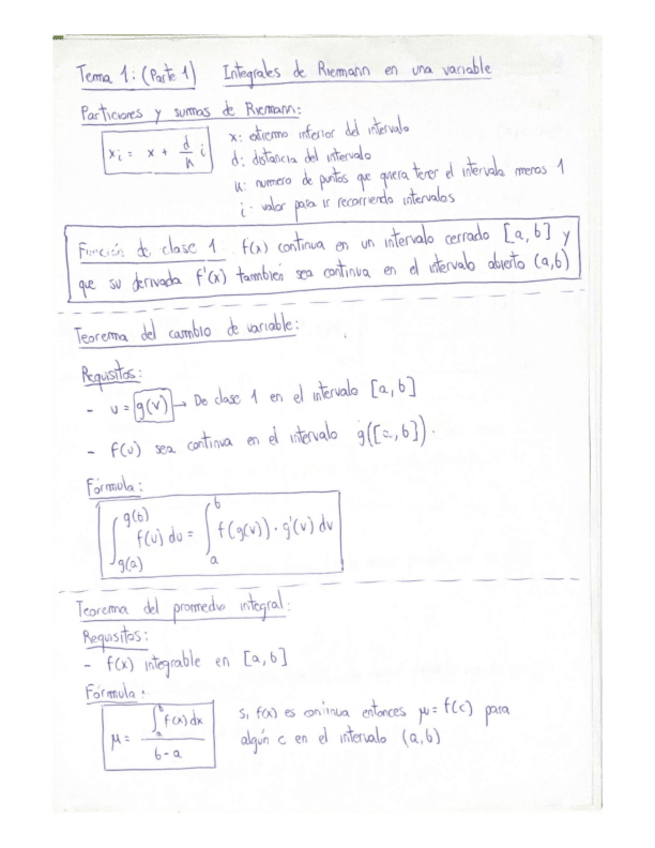 Tema 1: (Parte 1) Integrales de Riemann en una variable
Particiones y sumas de Riemann:
xᵢ = x + d/n i
x: extremo inferior del intervalo
d: distancia del intervalo
n: numero de puntos que quiera tener el intervalo menos 1
i: valor para ir recorriendo intervalos
Función de clase 1 f(x) continua en un intervalo cerrado [a,b] y
que su derivada f'(x) también sea continua en el intervalo abierto (a,b)
Teorema del cambio de variable:
Requisitos:
- u = g(v) → De clase 1 en el intervalo [a,b]
- f(u) sea continua en el intervalo g([a,b]).
Fórmula:
∫_{g(a)}^{g(b)} f(u) du = ∫_a^b f(g(v)) · g'(v) dv
Teorema del promedio integral:
Requisitos:
- f(x) integrable en [a,b]
Fórmula:
μ = ∫_a^b f(x) dx / b-a
Si f(x) es continua entonces μ = f(c) para
algún c en el intervalo (a,b)